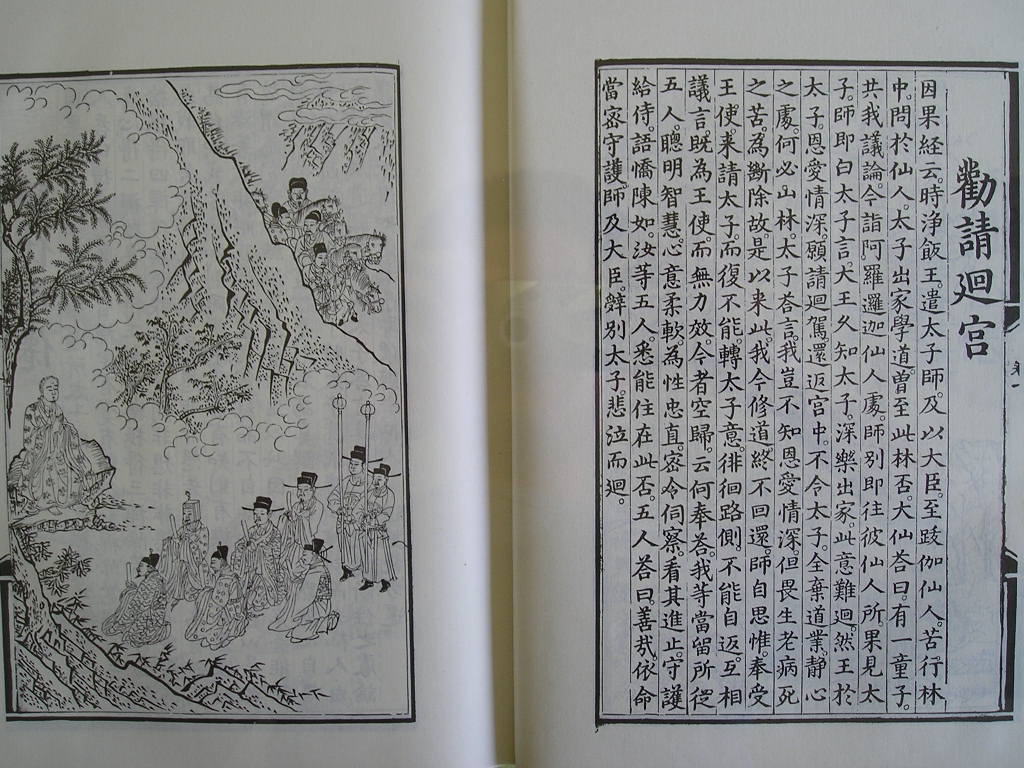 勸請廻宫
因果経云。時浄飯王。遣太子師。及以大臣。至跋伽仙人。苦行林
中。問於仙人。太子出家學道。曽至此林否。大仙荅曰。有一童子。
共我議論。今詣阿羅邏迦仙人處。師别即往彼仙人所。果見太
子。師即白太子言。大王久知太子。深樂出家。此意難廻。然王於
太子。恩愛情深。願請廻駕。還返宫中。不令太子。全棄道業。静心
之處。何必山林。太子荅言。我豈不知。恩愛情深。但畏生老病死
之苦。為斷除故。是以来此。我今修道。終不回還。師自思惟。奉受
王使。来請太子。而復不能。轉太子意。徘徊路側。不能自返。互相
議言。既為王使。而無力效。今者空歸。云何奉荅。我等當留所從
五人。聰明智慧。心意柔軟。為性忠直。宻令伺察。看其進止。守護
給侍。語憍陳如。汝等五人。悉能住在此否。五人荅曰。善㦲。依命
當宻守護。師及大臣。辤别太子。悲泣而廻。
卷一